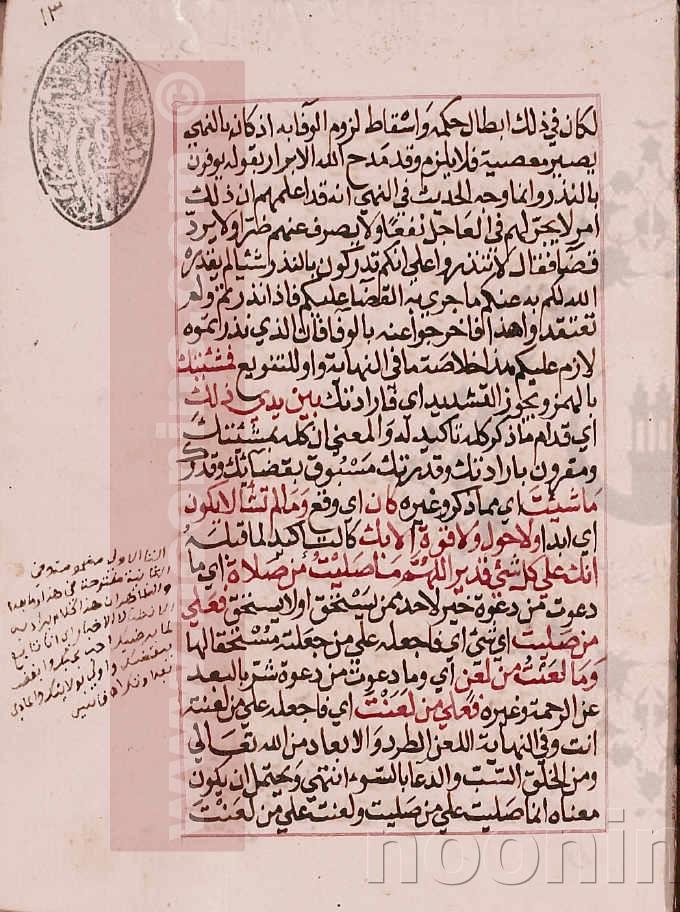 ١٣
لكان في ذلك ابطال حكمه واسقاط لزوم الوفا به اذ كان بالنهي
يصير معصية فلا يلزم وقد مدح الله الابرار بقوله يوفون
بالنذر وانما وجه الحديث في النهي انه قد اعلمهم ان ذلك
امر لا يجر لهم في العاجل نفعا ولا يصرف عنهم ضرا ولا يرد
قضا فقال لا تنذروا علي انكم تدركون بالنذر شيا لم يقدره
الله لكم به عنكم ما جري به القضا عليكم فاذا نذرتم ولم
تعتقدوا هذا فاخرجوا عنه بالوفا فان الذي نذرتموه
لازم عليكم هذا خلاصة ما في النهاية واو للتنويع فمشئتك
بالهمز ويجوز التشديد اي فارادتك بين يدي ذلك
اي قدام ما ذكر كله تاكيد له والمعني ان كله بمشئتك
ومقرون بارادتك وقدرتك مسبوق بقضائك وقدرك
ما شيئت اي مما ذكر وغيره كان اي وقع وما لم تشا لا يكون
اي ابدا ولا حول ولا قوة الا بك كالتاكيد لما قبله
انك علي كل شئ قدير اللهم ما صليت من صلاة اي ما
دعوت من دعوة خير لاحد ممن يستحق او لا يستحق فعلي
من صليت اي شئ اي فاجعله علي من جعلته مستحقا لها
وما لعنت من لعن اي وما دعوت من دعوة شر بالبعد
عن الرحمة وغيره فعلي من لعنت اي فاجعله علي من لعنته
انت وفي النهاية اللعن الطرد والابعاد من الله تعالي
ومن الخلق السب والدعا بالسوء انتهي ويحتمل ان يكون
معناه انما صليت علي من صليت ولعنت علي من لعنت
التا الاولي مضمومة وفي
الثانية مفتوحة في هذا وما بعده
noonin